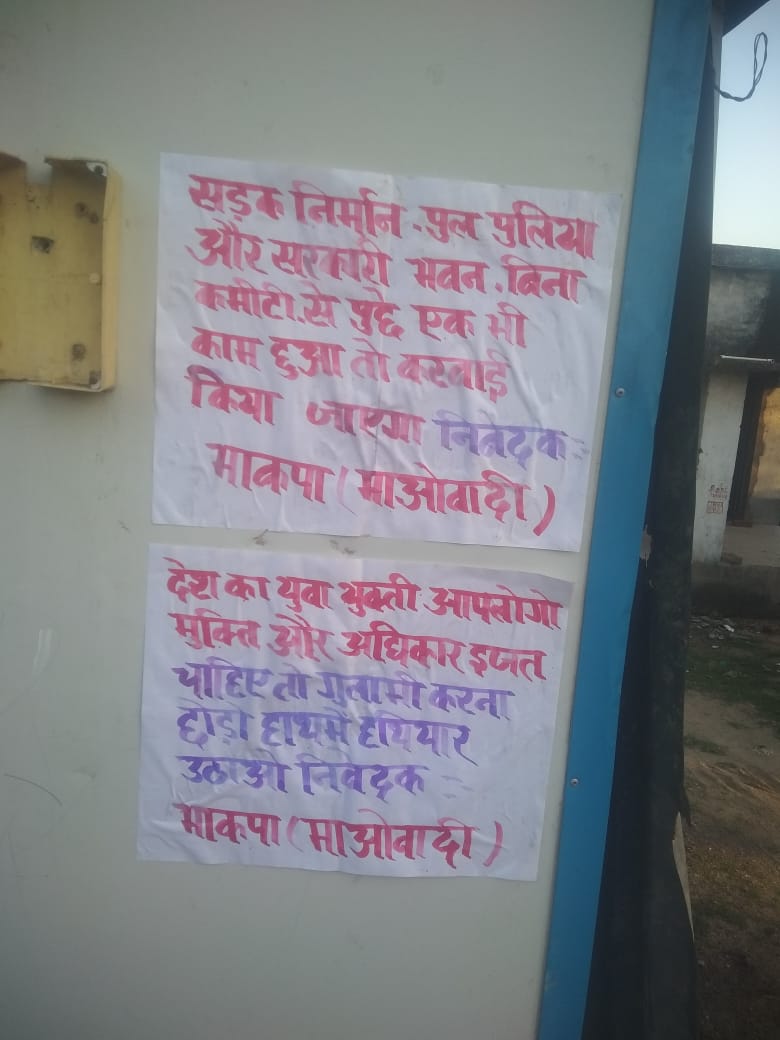 सड़क निर्मान. पुल पुलिया
और सरकारी भवन. बिना
कमीटी. से पुछे एक भी
काम हुआ तो करवाई
किया जाएगा निवेदक =
भाकपा (माओवादी)
देश का युवा युवती आपलोगो
मुक्ति और अधिकार इजत
चाहिए तो गुलामी करना
छोड़ो हाथमें हथियार
उठाओ निवेदक =
भाकपा (माओवादी)